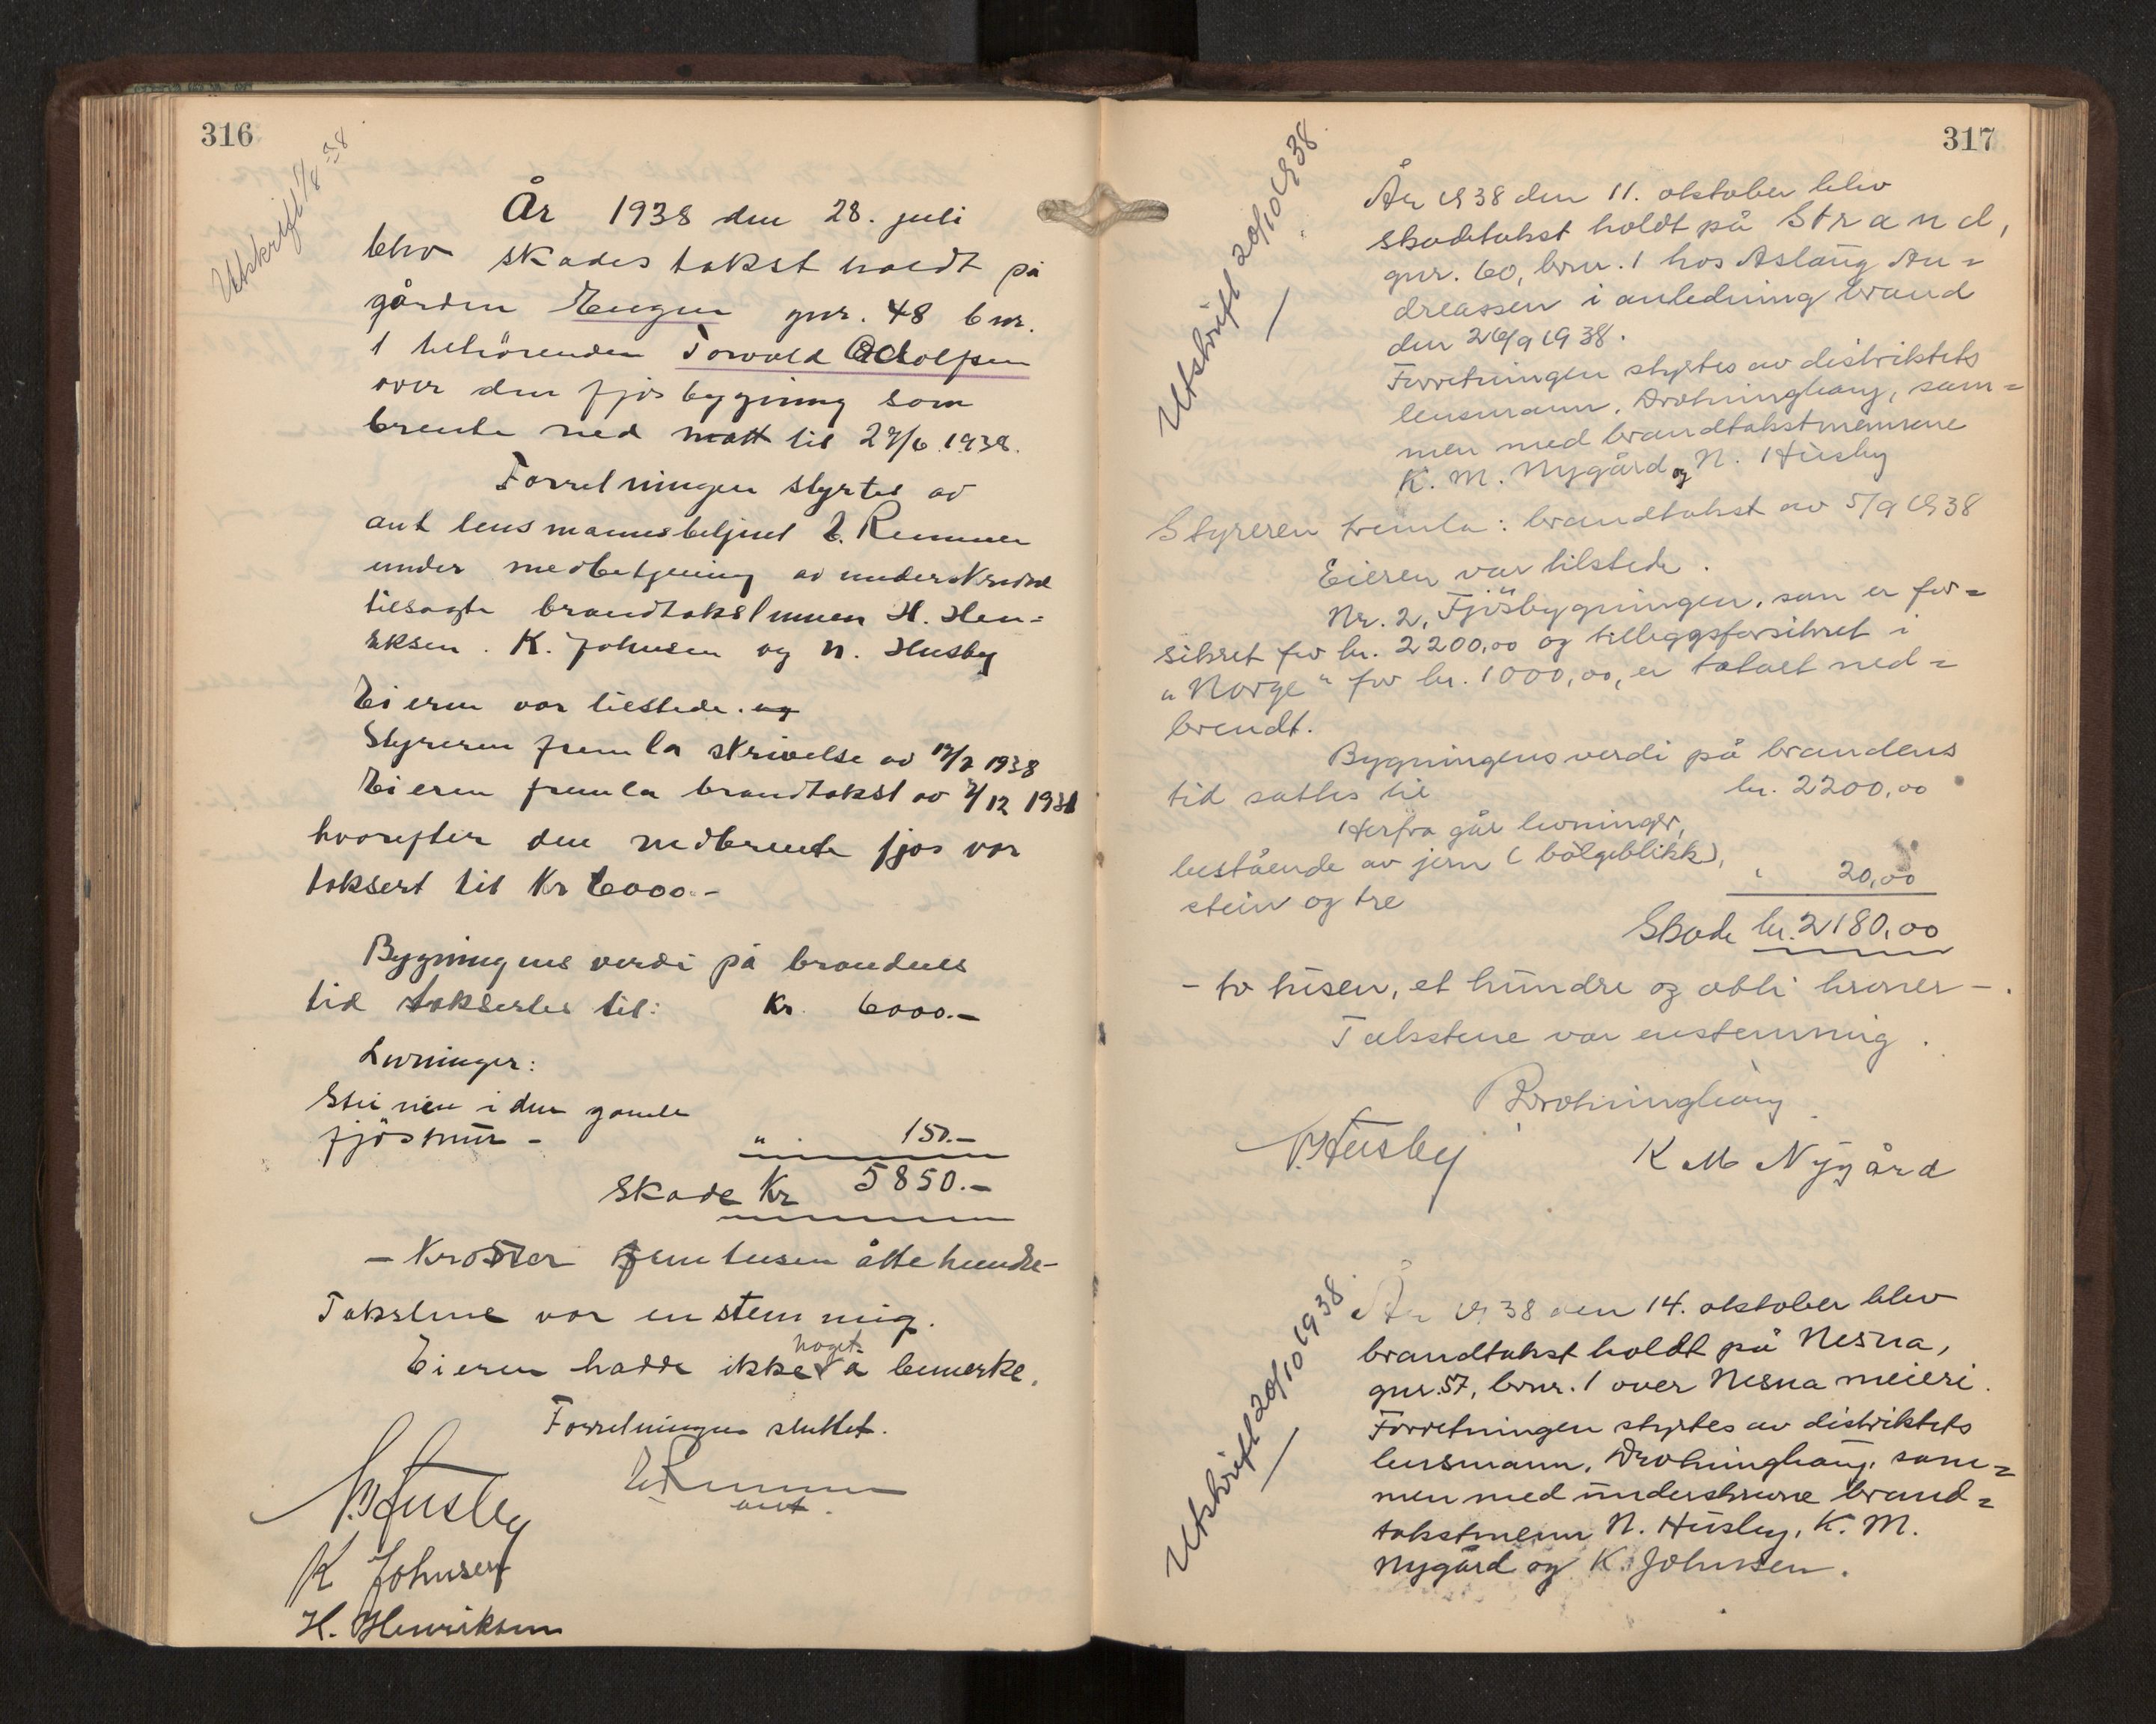 316
Utskrift 1/8 38
År 1938 den 28. juli
blev skadestakst holdt på
gården Engen gnr. 48 bnr.
1 tilhörenden Torvald Adolfsen
over den fjösbygning som
brente ned natt til 27/6 1938.
Forretningen styrtes av
aut lensmannsbetjent E. Remmen
under medbetjening av underskrevne
tilsagte brandtakstmenn H. Hen=
riksen. K. Johnsen og N. Husby
Eieren var tilstede. og
Styreren fremla skrivelse av 19/7 1938
Eieren fremla brandtakst av 2/12 1931
hvorefter den nedbrente fjös var
taksert til Kr 6000.-
Bygningens verdi på brandens
tid taksertes til: Kr. 6000.-
Levninger:
Steinen i den gamle
fjösmur - " 150.-
Skade Kr 5850.-
- Kroner femtusen åtte hundre-
Takstene var enstemmig.
Eieren hadde ikke noget å bemerke.
Forretningen sluttet.
N. Husby
E. Remmen
aut.
K Johnsen
H. Henriksen
317
Utskrift 20/10 1938
År 1938 den 11. oktober blev
skadetakst holdt på Strand,
gnr. 60, bnr. 1 hos Aslaug An=
dreassen i anledning brand
den 26/9 1938.
Forretningen styrtes av distriktets
lensmann, Dronninghaug, sam=
men med brandtakstmennene
K. M. Nygård og N. Husby
Styreren fremla: brandtakst av 5/9 1938
Eieren var tilstede.
Nr. 2, Fjösbygningen, som er for=
sikret for kr. 2200,00 og tilleggsforsikret i
"Norge" for kr. 1000,00, er totalt ned=
brendt.
Bygningens verdi på brandens
tid sattes til kr. 2200,00
Herfra går levninger,
bestående av jern (bölgeblikk),
stein og tre " 20,00
Skade kr. 2180,00
- to tusen, et hundre og otti kroner -.
Takstene var enstemmig.
Dronninghaug
N. Husby
K M Nygård
Utskrift 20/10 1938
År 1938 den 14. oktober blev
brandtakst holdt på Nesna,
gnr. 57, bnr. 1 over Nesna meieri.
Forretningen styrtes av distriktets
lensmann, Dronninghaug, sam=
men med underskrevne brand=
takstmenn N. Husby, K. M.
Nygård og K. Johnsen.